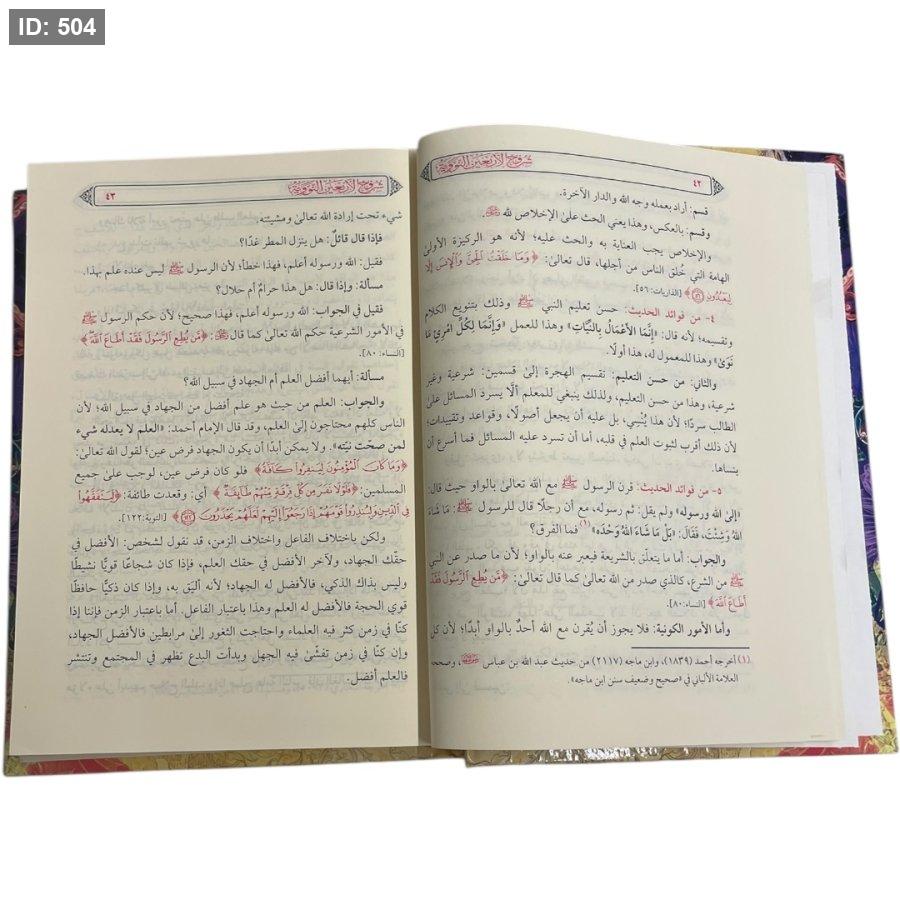 ID: 504
شروح الأربعين النووية
٤٢
قسم: أراد بعمله وجه الله والدار الآخرة.
وقسم: بالعكس، وهذا يعني الحث على الإخلاص لله ﷻ.
والإخلاص يجب العناية به والحث عليه؛ لأنه هو الركيزة الأولى
الهامة التي خُلق الناس من أجلها، قال تعالى: ﴿وَمَا خَلَقْتُ الْجِنَّ وَالْإِنسَ إِلَّا
لِيَعْبُدُونِ ٥٦﴾ [الذاريات: ٥٦].
٤- من فوائد الحديث: حسن تعليم النبي ﷺ وذلك بتنويع الكلام
وتقسيمه؛ لأنه قال: «إِنَّمَا الأَعْمَالُ بِالنِّيَّاتِ» وهذا للعمل «وَإِنَّمَا لِكُلِّ امْرِئٍ مَا
نَوَىٰ» وهذا للمعمول له، هذا أولًا.
والثاني: من حسن التعليم: تقسيم الهجرة إلى قسمين: شرعية وغير
شرعية، وهذا من حسن التعليم، ولذلك ينبغي للمعلم ألَّا يسرد المسائل على
الطالب سردًا؛ لأن هذا يُنْسِي، بل عليه أن يجعل أصولًا، وقواعد وتقييدات؛
لأن ذلك أقرب لثبوت العلم في قلبه، أما أن تسرد عليه المسائل فما أسرع أن
ينساها.
٥- من فوائد الحديث: قرن الرسول ﷺ مع الله تعالى بالواو حيث قال:
«إلى الله ورسوله» ولم يقل: ثم رسوله، مع أن رجلًا قال للرسول ﷺ: مَا شَاءَ
اللهُ وَشِئْتَ، فَقَالَ: «بَلْ مَا شَاءَ اللهُ وَحْدَه» (١) فما الفرق؟
والجواب: أما ما يتعلّق بالشريعة فيعبر عنه بالواو؛ لأن ما صدر عن النبي
ﷺ من الشرع، كالذي صدر من الله تعالى كما قال تعالى: ﴿مَّن يُطِعِ الرَّسُولَ فَقَدْ
أَطَاعَ اللَّهَ﴾ [النساء: ٨٠].
وأما الأمور الكونية: فلا يجوز أن يُقرن مع الله أحدٌ بالواو أبدًا؛ لأن كل
(١) أخرجه أحمد (١٨٣٩)، وابن ماجه (٢١١٧) من حديث عبد الله بن عباس، وصححه
العلامة الألباني في «صحيح وضعيف سنن ابن ماجه».
شروح الأربعين النووية
٤٣
شيء تحت إرادة الله تعالى ومشيئته.
فإذا قال قائلٌ: هل ينزل المطر غدًا؟
فقيل: الله ورسوله أعلم، فهذا خطأ؛ لأن الرسول ﷺ ليس عنده علم بهذا.
مسألة: وإذا قال: هل هذا حرامٌ أم حلال؟
فقيل في الجواب: الله ورسوله أعلم، فهذا صحيح؛ لأن حكم الرسول ﷺ
في الأمور الشرعية حكم الله تعالى كما قال: ﴿مَّن يُطِعِ الرَّسُولَ فَقَدْ أَطَاعَ اللَّهَ﴾
[النساء: ٨٠].
مسألة: أيهما أفضل العلم أم الجهاد في سبيل الله؟
والجواب: العلم من حيث هو علم أفضل من الجهاد في سبيل الله؛ لأن
الناس كلهم محتاجون إلى العلم، وقد قال الإمام أحمد: «العلم لا يعدله شيء
لمن صحّت نيّته». ولا يمكن أبدًا أن يكون الجهاد فرض عين؛ لقول الله تعالى:
﴿وَمَا كَانَ الْمُؤْمِنُونَ لِيَنفِرُوا كَافَّةً﴾ فلو كان فرض عين، لوجب على جميع
المسلمين: ﴿فَلَوْلَا نَفَرَ مِن كُلِّ فِرْقَةٍ مِّنْهُمْ طَائِفَةٌ﴾ أي: وقعدت طائفة: ﴿لِّيَتَفَقَّهُوا
فِي الدِّينِ وَلِيُنذِرُوا قَوْمَهُمْ إِذَا رَجَعُوا إِلَيْهِمْ لَعَلَّهُمْ يَحْذَرُونَ ١٢٢﴾ [التوبة: ١٢٢].
ولكن باختلاف الفاعل واختلاف الزمن، قد نقول لشخص: الأفضل في
حقّك الجهاد، ولآخر الأفضل في حقك العلم، فإذا كان شجاعًا قويًّا نشيطًا
وليس بذاك الذكي، فالأفضل له الجهاد؛ لأنه أليَق به، وإذا كان ذكيًّا حافظًا
قوي الحجة فالأفضل له العلم وهذا باعتبار الفاعل. أما باعتبار الزمن فإننا إذا
كنّا في زمن كثر فيه العلماء واحتاجت الثغور إلى مرابطين فالأفضل الجهاد،
وإن كنّا في زمن تفشَّى فيه الجهل وبدأت البدع تظهر في المجتمع وتنتشر
فالعلم أفضل.